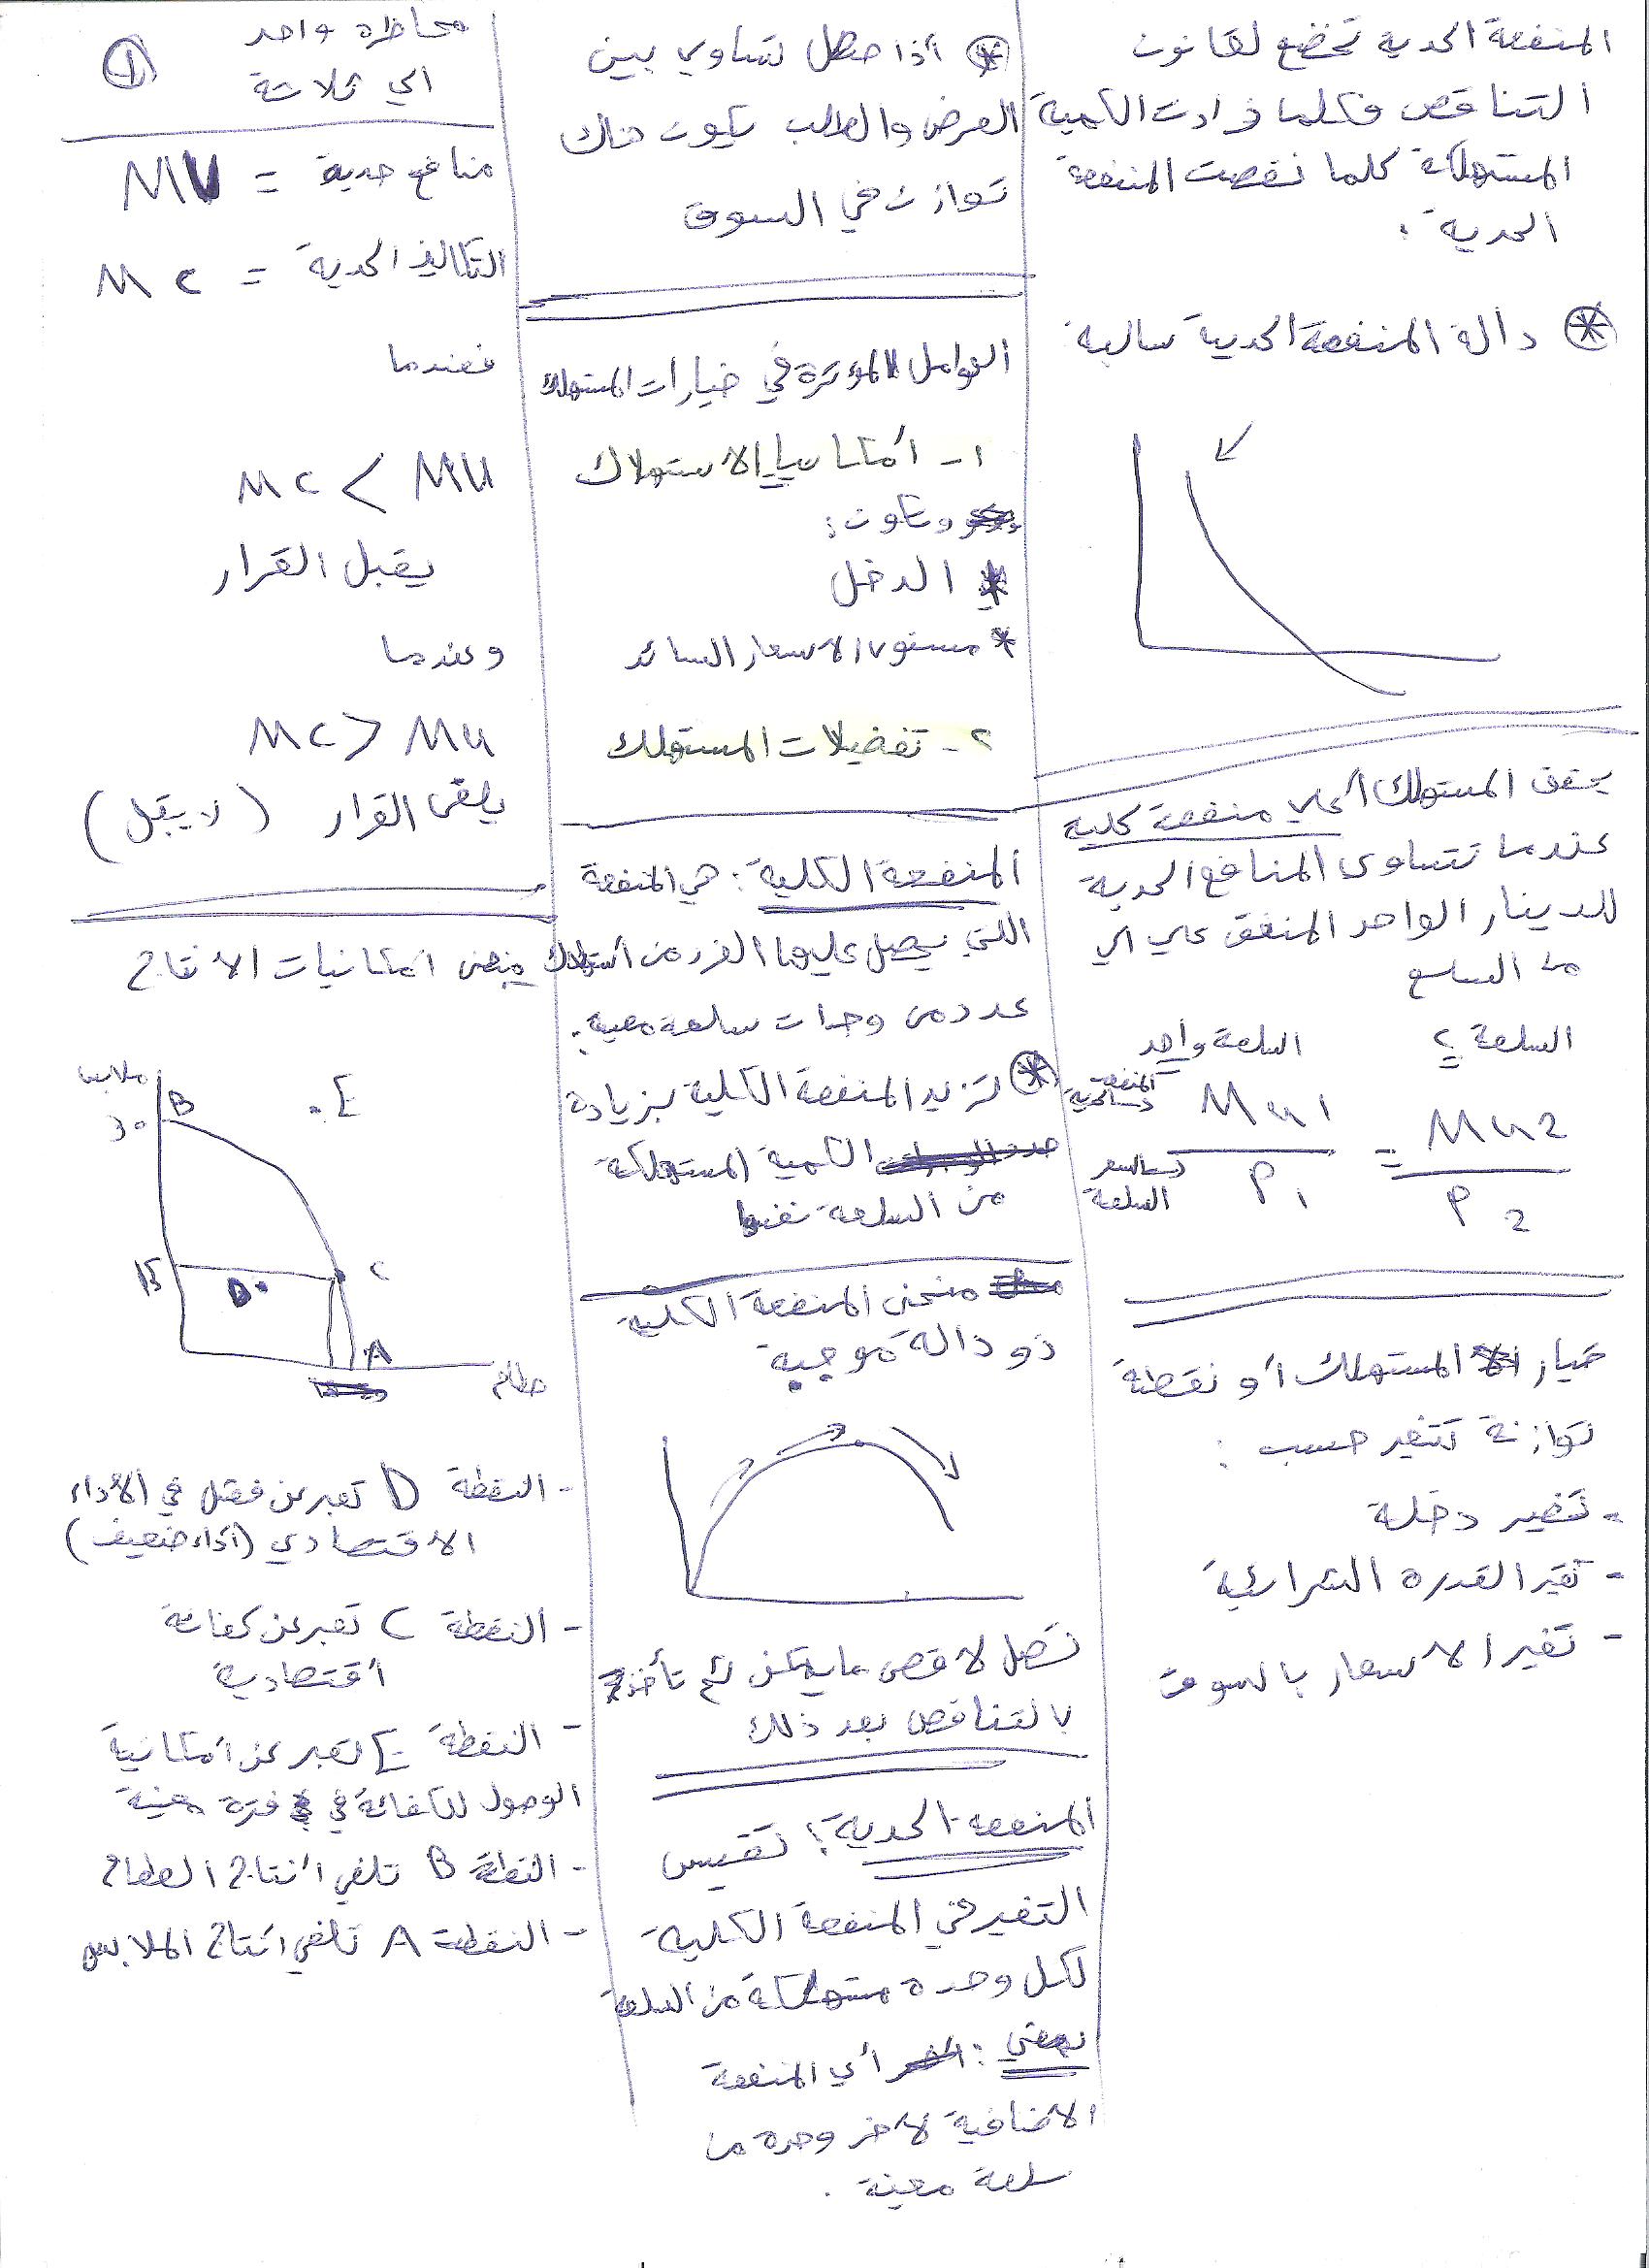 محاظره واحد
الى ثلاثة
1
منافع حدية = MU
التكاليف الحدية = MC
فعندما
MC < MU
يقبل القرار
وعندما
MC > MU
يلغى القرار (لا يقبل)
منحنى امكانيات الانتاج
ملابس
30
B
E
15
D
C
A
طعام
- النقطة D تعبر عن فشل في الأداء
الاقتصادي (أداء ضعيف)
- النقطة C تعبر عن كفائة
اقتصادية
- النقطة E تعبر عن امكانية
الوصول للكفائة في فترة معينة
- النقطة B تلغي انتاج الطعام
- النقطة A تلغي انتاج الملابس
* أذا حصل تساوي بين
العرض والطلب يكون هناك
توازن في السوق
العوامل المؤثرة في خيارات المستهلك
١- أمكانيات الاستهلاك
وتكون:
* الدخل
* مستوى الاسعار السائد
٢- تفضيلات المستهلك
المنفعة الكلية: هي المنفعة
التي يحصل عليها الفرد من أستهلاك
عدد من وحدات سلعة معينة.
* تزيد المنفعة الكلية بزيادة
الكمية المستهلكة
من السلعة نفسها
منحنى المنفعة الكلية
ذو دالة موجبة
تصل لاقصى مايمكن ثم تأخذ
بالتناقص بعد ذلك
المنفعه الحدية: تقيس
التغير في المنفعة الكلية
لكل وحدة مستهلكة من السلعة
يعني: أي المنفعة
الاضافية لأخر وحدة من
سلعة معينة.
المنفعة الحدية تخضع لقانون
التناقص فكلما زادت الكمية
المستهلكة كلما نقصت المنفعة
الحدية.
* دالة المنفعة الحدية سالبة
يحقق المستهلك أعلى منفعة كلية
عندما تتساوى المنافع الحدية
للدينار الواحد المنفق على اي
من السلع
السلعة واحد السلعة ٢
المنفعة الحدية MU1 = MU2
السعر السلعة P1 P2
خيار المستهلك أو نقطة
توازنة تتغير حسب:
- تغير دخلة
- تغير القدرة الشرائية
- تغير الاسعار بالسوق